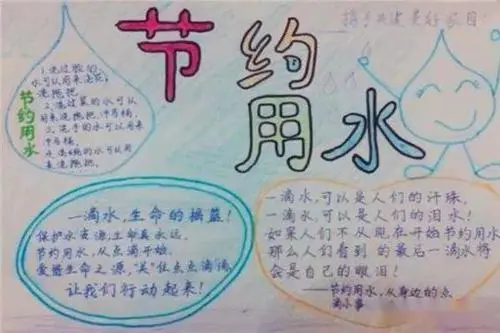 携手共建美好家园!
节约
用水
节约用水
1.洗过脸的
水可以用来浇花,
洗拖把.
2.洗过菜的水可以
用来洗拖把,冲马桶.
3.洗手的水可以用来
冲马桶.
来洗拖把.
一滴水,生命的摇篮!
保护水资源,生命真永远.
节约用水,从点滴开始.
爱惜生命之源,"关"住点点滴滴,
让我们行动起来!
一滴水,可以是人们的汗珠,
一滴水,可以是人们的泪水!
如果人们不从现在开始节约用水
那么人们看到的最后一滴水将
会是自己的眼泪!
——节约用水,从身边的点
滴小事